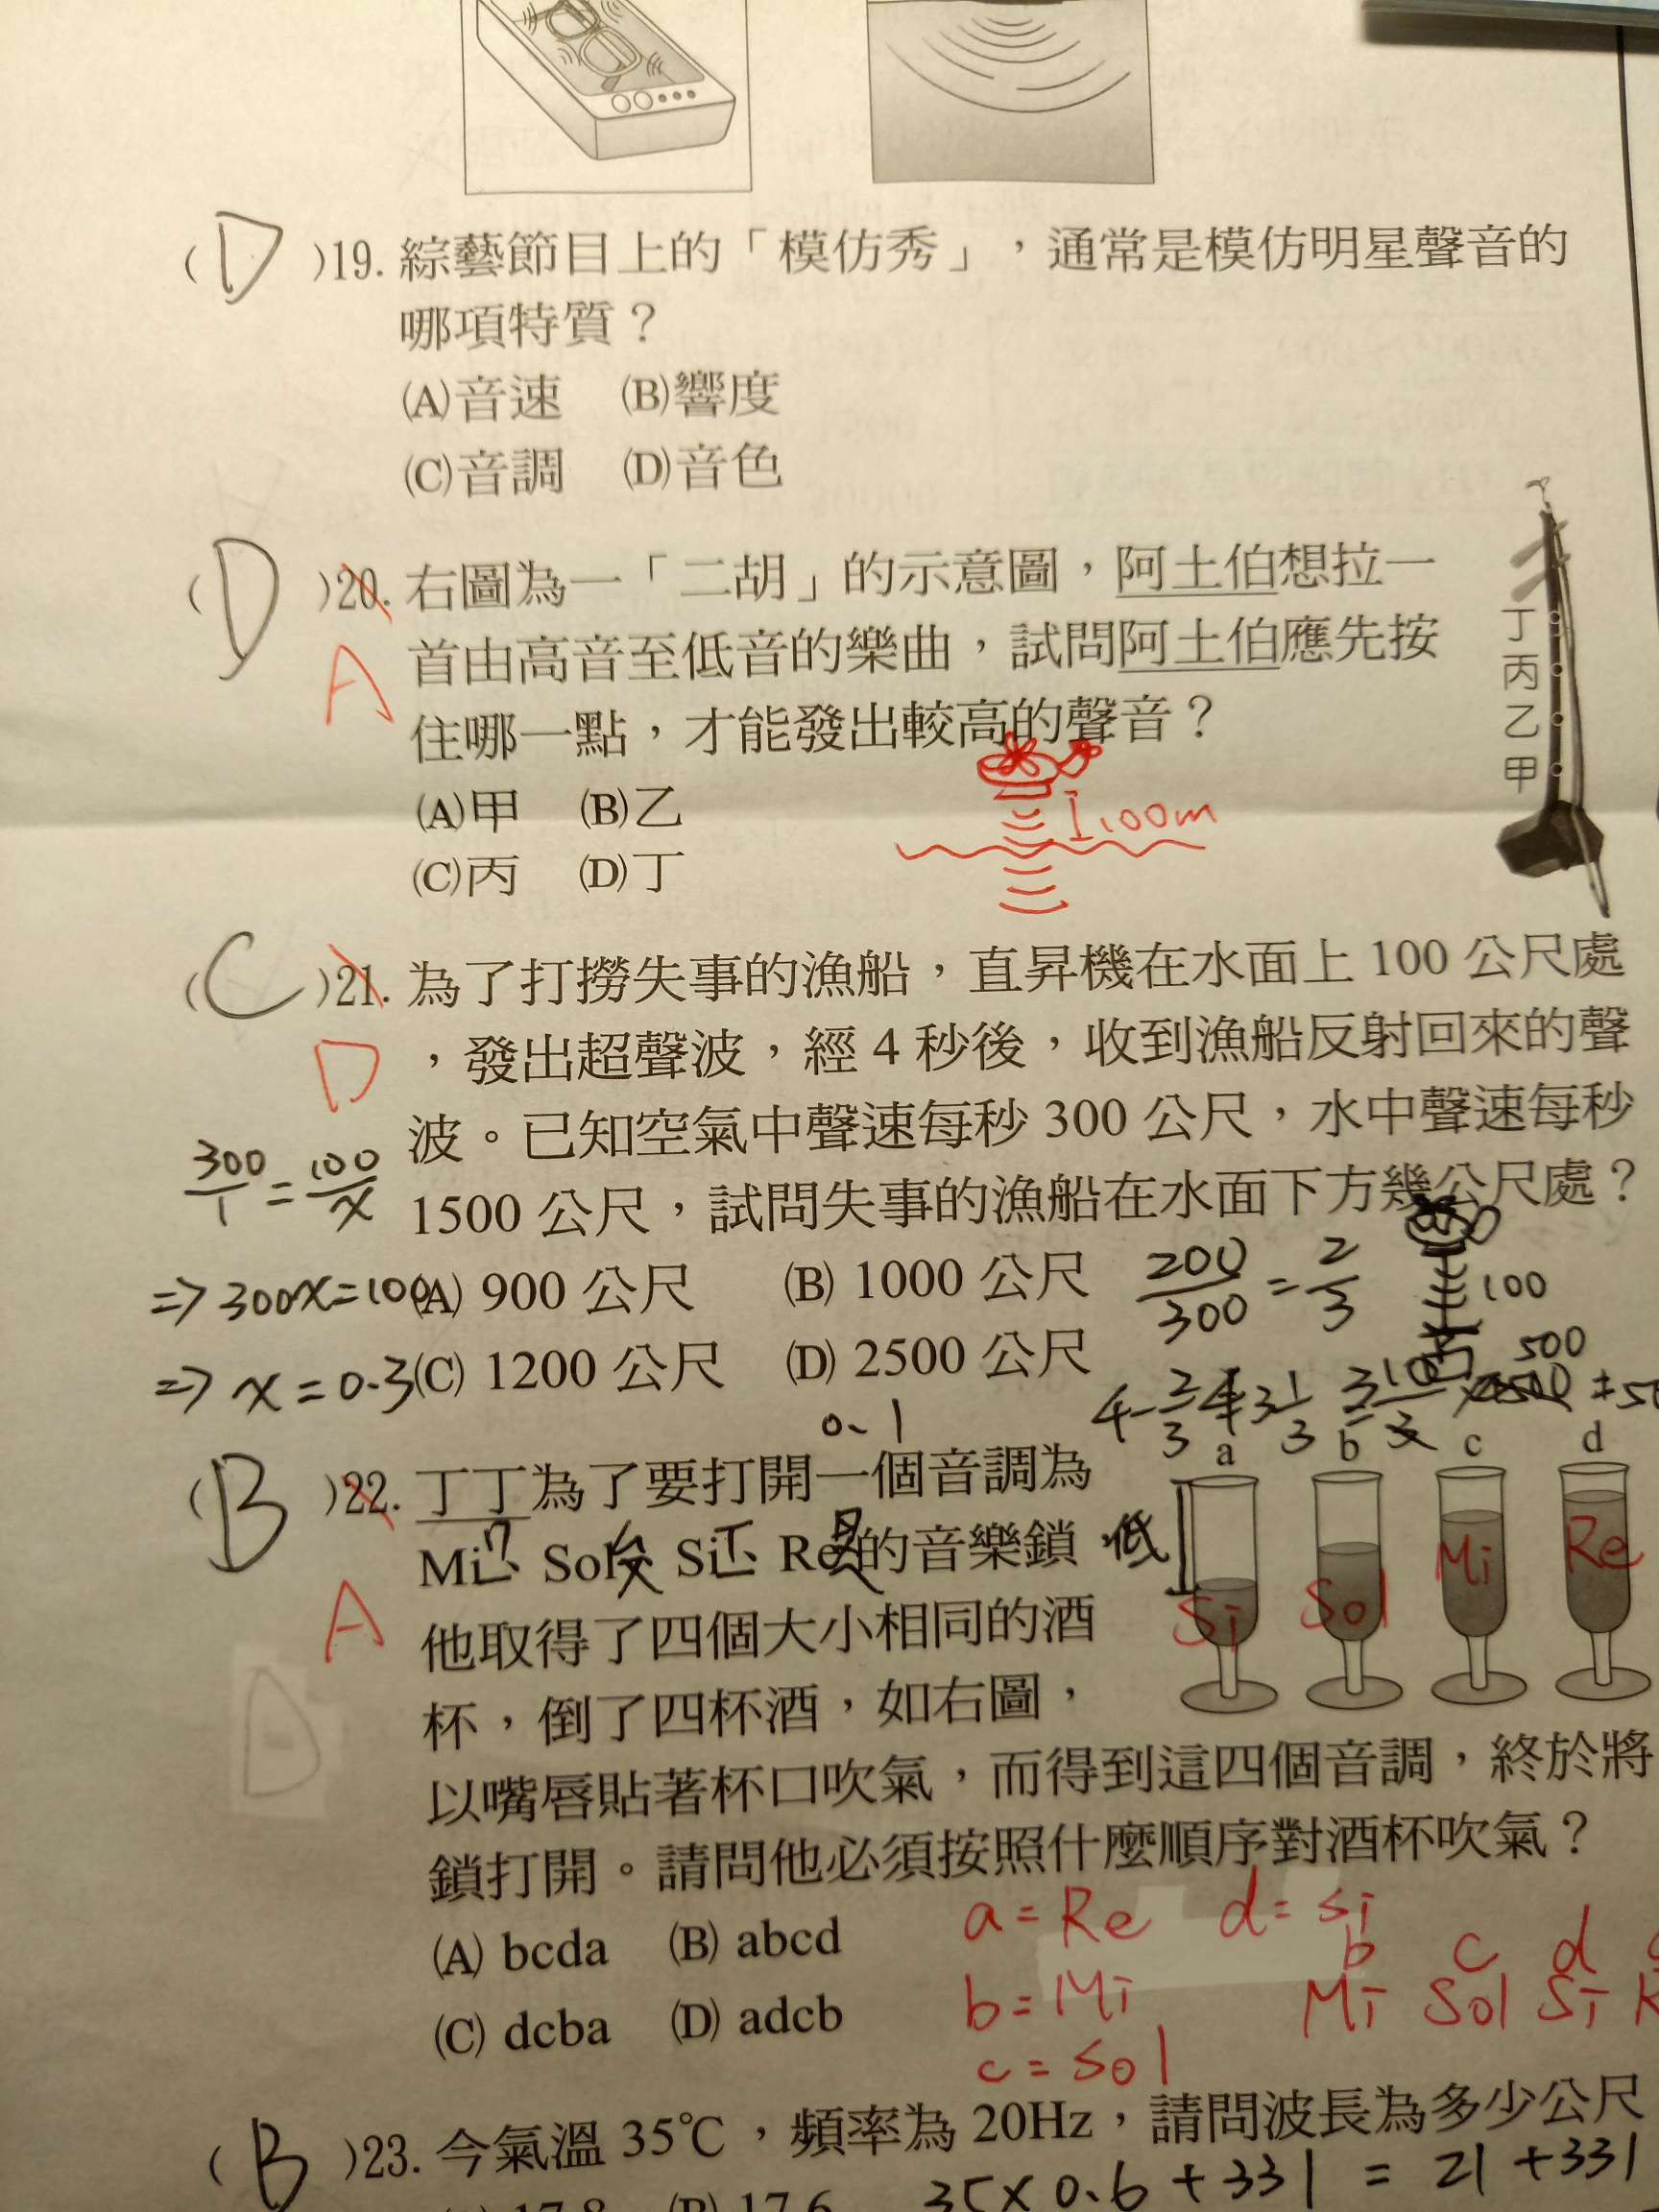 (D)19. 綜藝節目上的「模仿秀」，通常是模仿明星聲音的
哪項特質？
(A)音速 (B)響度
(C)音調 (D)音色
(D)20. 右圖為一「二胡」的示意圖，阿土伯想拉一
A 首由高音至低音的樂曲，試問阿土伯應先按
住哪一點，才能發出較高的聲音？
(A)甲 (B)乙
(C)丙 (D)丁
丁
丙
乙
甲
100m
(C)21. 為了打撈失事的漁船，直昇機在水面上 100 公尺處
D ，發出超聲波，經 4 秒後，收到漁船反射回來的聲
波。已知空氣中聲速每秒 300 公尺，水中聲速每秒
1500 公尺，試問失事的漁船在水面下方幾公尺處？
(A) 900 公尺 (B) 1000 公尺
(C) 1200 公尺 (D) 2500 公尺
300/1 = 100/x
=> 300x=100
=> x = 0.3
0.1
200/300 = 2/3
100
500
(B)22. 丁丁為了要打開一個音調為
Mi、Sol、Si、Re 的音樂鎖，
A 他取得了四個大小相同的酒
杯，倒了四杯酒，如右圖，
以嘴唇貼著杯口吹氣，而得到這四個音調，終於將
鎖打開。請問他必須按照什麼順序對酒杯吹氣？
(A) bcda (B) abcd
(C) dcba (D) adcb
a b c d
低
Si Sol Mi Re
a = Re d = si
b = Mi
c = sol
b c d
Mi Sol Si
(B)23. 今氣溫 35℃，頻率為 20Hz，請問波長為多少公尺
35×0.6+331 = 21+331